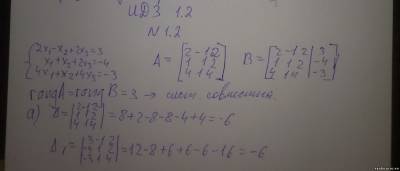 ИДЗ 1.2
N 1.2
{2x₁-x₂+2x₃=3
x₁+x₂+2x₃=-4
4x₁+x₂+4x₃=-3
A = [2 -1 2
1 1 2
4 1 4]
B = [2 -1 2 | 3
1 1 2 | -4
4 1 4 | -3]
rang A = rang B = 3 → сист. совместима.
а) D = |2 -1 2
1 1 2
4 1 4| = 8+2-8-8-4+4 = -6
Δ₁ = |3 -1 2
-4 1 2
-3 1 4| = 12-8+6+6-6-16 = -6